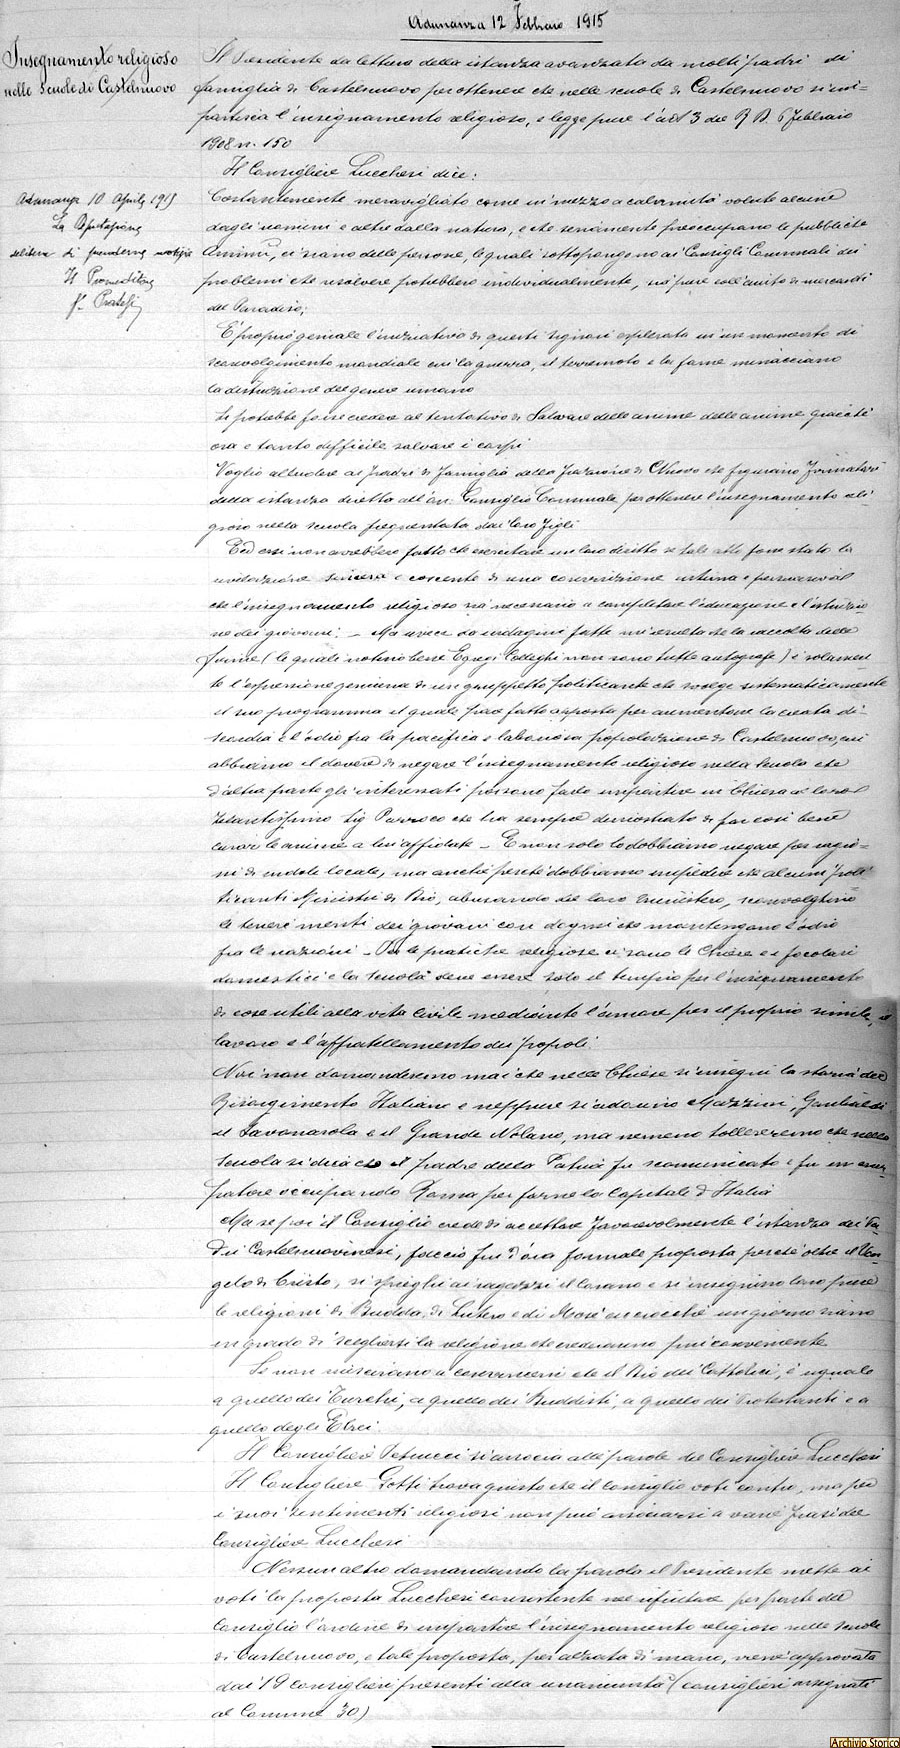 Adunanza 12 Febbraio 1915
Insegnamento religioso
nelle Scuole di Castelnuovo
Il Presidente da lettura della istanza avanzata da molti padri di
famiglia di Castelnuovo per ottenere che nelle scuole di Castelnuovo si im-
partisca l'insegnamento religioso, e legge pure l'art 3 del R D. 6 febbraio
1908 n. 150
Il Consigliere Lucchesi dice:
Adunanza 10 Aprile 1915
La Deputazione
delibera di prenderne notizia
Il Promeditore
f. Pratesi
Costantemente meravigliato come in mezzo a calamità volute alcune
dagli uomini e altre dalla natura, e che seriamente preoccupano le pubbliche
Amm.ni, ci siano delle persone, le quali sottopongono ai Consigli Comunali dei
problemi che risolvere potrebbero individualmente, sia pure coll'aiuto di mercanti
del Paradiso;
È proprio geniale l'iniziativa di questi signori esplicata in un momento di
sconvolgimento mondiale cui la guerra, il terremoto e la fame minacciano
la distruzione del genere umano
Si potrebbe forse credere al tentativo di Salvare delle anime delle anime giacchè
ora è tanto difficile salvare i corpi
Voglio alludere ai padri di famiglia della frazione di C.Nuovo che figurano firmatari
della istanza diretta all'on. Consiglio Comunale per ottenere l'insegnamento reli-
gioso nella scuola frequentata dai loro figli
Ed essi non avrebbero fatto che esercitare un loro diritto se tale atto fosse stato la
sincera e cosciente di una convinzione interna e
che l'insegnamento religioso sia necessario a completare l'educazione e l'istruzio-
ne dei giovani; - Ma invece da indagini fatte mi risulta che la raccolta delle
firme (le quali notino bene Egregi Colleghi non sono tutte autografe) è solamen-
te l'espressione genuina di un gruppetto politicante che svolge sistematicamente
il suo programma il quale pare fatto apposta per aumentare la creata di-
scordia e l'odio fra la pacifica e laboriosa popolazione di Castelnuovo, cui
abbiamo il dovere di negare l'insegnamento religioso nella scuola che
d'altra parte gli interessati possono farlo impartire in Chiesa al loro
zelantissimo Sig Parroco che ha sempre dimostrato di far così bene
curare le anime a lui affidate - E non solo lo dobbiamo negare per ragio-
ni di indole locale, ma anche perché dobbiamo impedire che alcuni poli-
ticanti Ministri di Dio, abusando del loro ministero, sconvolghino
le teneri menti dei giovani con dogmi che mantengano l'odio
fra le nazioni - Per le pratiche religiose ci sono le Chiese ed i focolari
domestici e la scuola deve essere solo il tempio per l'insegnamento
di cose utili alla vita civile mediante l'amore per il proprio simile, il
lavoro e l'affratellamento dei popoli.
Noi non domanderemo mai che nelle Chiese si insegni la storia del
Risorgimento Italiano e neppure si adorino Mazzini, Garibaldi
il Savonarola e il Grande Nolano, ma nemeno tollereremo che nella
scuola si dica che il padre della Patria fu scomunicato e fu un usur-
patore occupando Roma per farne la Capitale d'Italia
Ma se poi il Consiglio crede di accettare favorevolmente l'istanza dei Pa-
dri Castelnuovinesi, faccio fin d'ora formale proposta perché oltre il Van-
gelo di Cristo, si spieghi ai ragazzi il Corano e si insegnino loro pure
le religioni di Budda, di Lutero e di Mosè acciocchè un giorno siano
in grado di scegliersi la religione che crederanno più conveniente
Se non riusciranno a convincersi che il Dio dei Cattolici, è uguale
a quello dei Turchi, a quello dei Buddisti, a quello dei Protestanti e a
quello degli Ebrei.
Il Consigliere Petrucci si associa alle parole del Consigliere Lucchesi
Il Consigliere Gotti trova giusto che il consiglio voti contro, ma per
i suoi sentimenti religiosi non può associarsi a varie frasi del
Consigliere Lucchesi
Nessun altro domandando la parola il Presidente mette ai
voti la proposta Lucchesi consistente nel rifiutare per parte del
Consiglio l'ordine di impartire l'insegnamento religioso nelle scuole
di Castelnuovo, e tale proposta, per alzata di mano, viene approvata
dai 19 consiglieri presenti alla unanimità (consiglieri assegnati
al Comune 30)
Archivio Storico